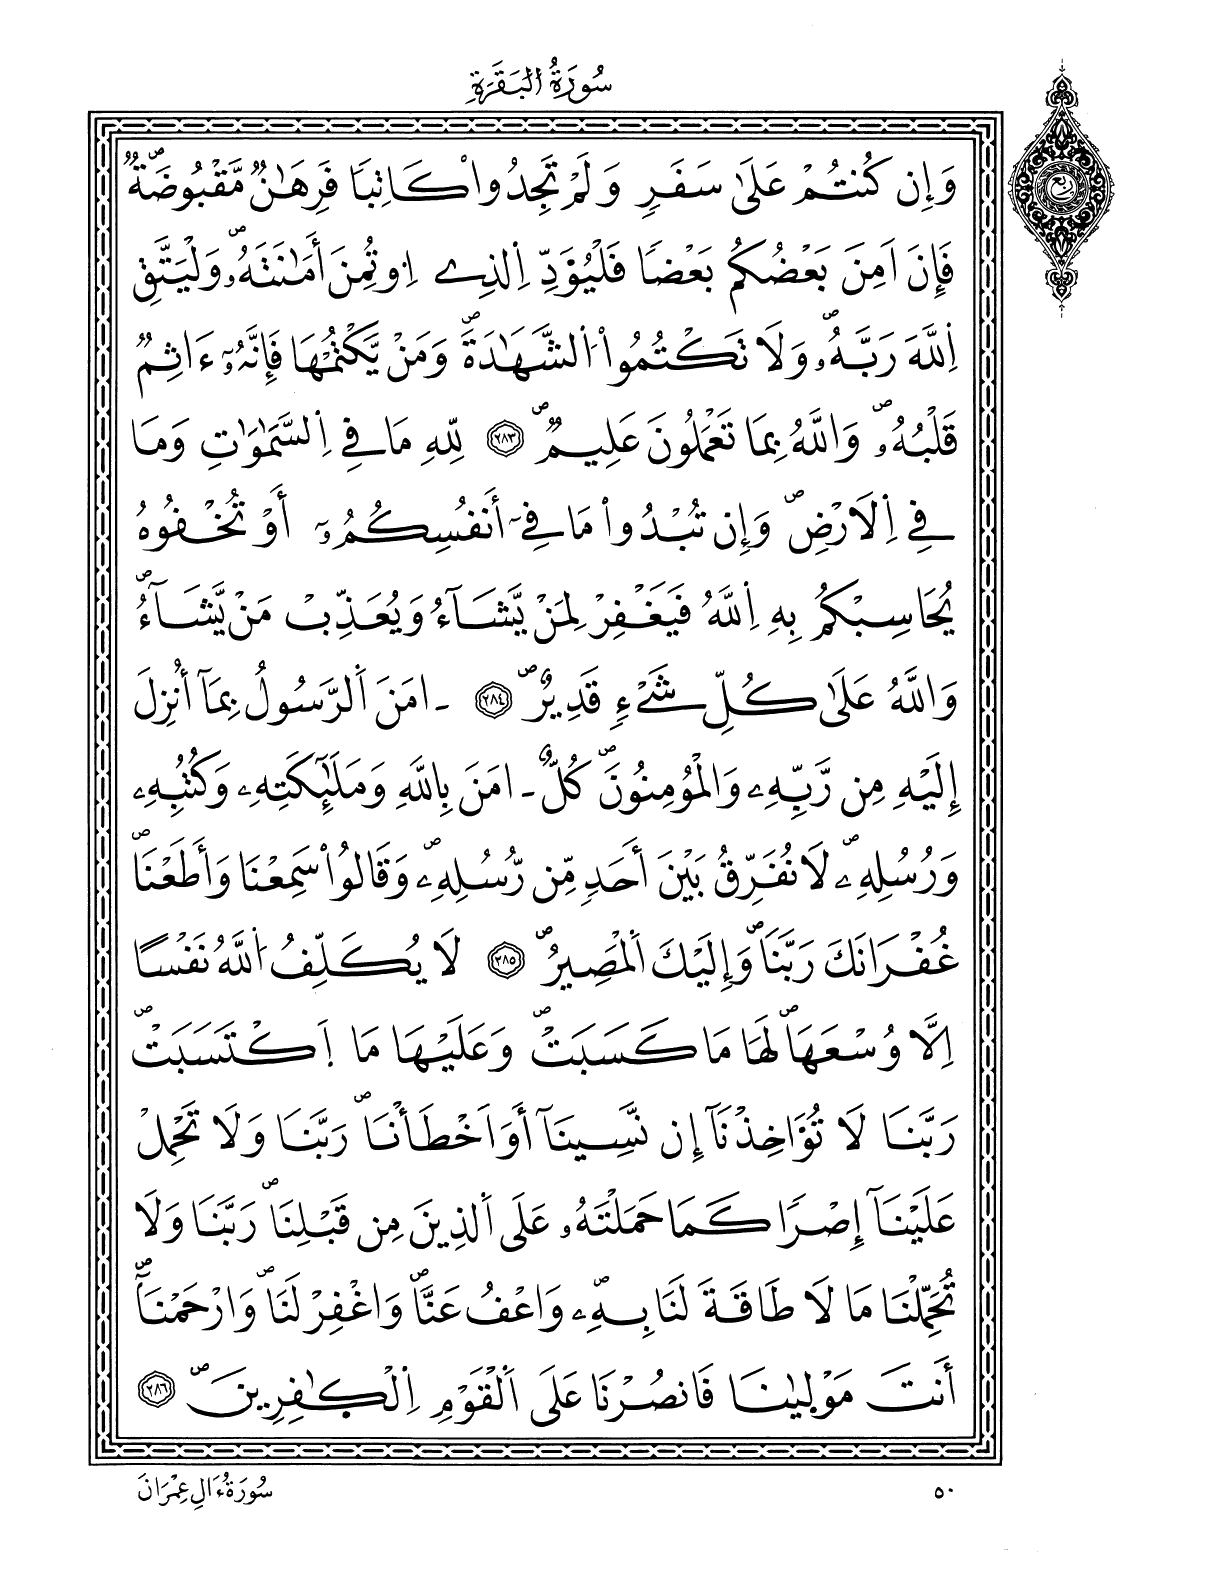 سُورَةُ الْبَقَرَةِ
ربع
وَإِن كُنتُمْ عَلَىٰ سَفَرٖ وَلَمْ تَجِدُواْ كَاتِباٗ فَرِهَٰنٞ مَّقْبُوضَةٞۖ
فَإِنَ اَمِنَ بَعْضُكُم بَعْضاٗ فَلْيُؤَدِّ اِ۬لذِے اِ۟وتُمِنَ أَمَٰنَتَهُۥۖ وَلْيَتَّقِ
اِ۬للَّهَ رَبَّهُۥۖ وَلَا تَكْتُمُواْ اُ۬لشَّهَٰدَةَۖ وَمَنْ يَّكْتُمْهَا فَإِنَّهُۥٓ ءَاثِمٞ
قَلْبُهُۥۖ وَاللَّهُ بِمَا تَعْمَلُونَ عَلِيمٞۖ ٢٨٣ لِلهِ مَا فِے اِ۬لسَّمَٰوَٰتِ وَمَا
فِے اِ۬لَارْضِۖ وَإِن تُبْدُواْ مَا فِےٓ أَنفُسِكُمُۥٓ أَوْ تُخْفُوهُ
يُحَاسِبْكُم بِهِ اِ۬للَّهُ فَيَغْفِرْ لِمَنْ يَّشَآءُ وَيُعَذِّبْ مَنْ يَّشَآءُۖ
وَاللَّهُ عَلَىٰ كُلِّ شَےْءٖ قَدِيرٌۖ ٢٨٤ ـ امَنَ اَ۬لرَّسُولُ بِمَآ أُنزِلَ
إِلَيْهِ مِن رَّبِّهِۦ وَالْمُؤْمِنُونَۖ كُلٌّ ـ امَنَ بِاللَّهِ وَمَلَٰٓئِكَتِهِۦ وَكُتُبِهِۦ
وَرُسُلِهِۦۖ لَا نُفَرِّقُ بَيْنَ أَحَدٖ مِّن رُّسُلِهِۦۖ وَقَالُواْ سَمِعْنَا وَأَطَعْنَاۖ
غُفْرَانَكَ رَبَّنَاۖ وَإِلَيْكَ اَ۬لْمَصِيرُۖ ٢٨٥ لَا يُكَلِّفُ اُ۬للَّهُ نَفْساً
اِلَّا وُسْعَهَاۖ لَهَا مَا كَسَبَتْۖ وَعَلَيْهَا مَا اَ۪كْتَسَبَتْۖ
رَبَّنَا لَا تُؤَاخِذْنَآ إِن نَّسِينَآ أَوَ اَخْطَأْنَاۖ رَبَّنَا وَلَا تَحْمِلْ
عَلَيْنَآ إِصْراٗ كَمَا حَمَلْتَهُۥ عَلَى اَ۬لذِينَ مِن قَبْلِنَاۖ رَبَّنَا وَلَا
تُحَمِّلْنَا مَا لَا طَاقَةَ لَنَا بِهِۦۖ وَاعْفُ عَنَّاۖ وَاغْفِرْ لَنَاۖ وَارْحَمْنَآۖ
أَنتَ مَوْل۪يٰنَا فَانصُرْنَا عَلَى اَ۬لْقَوْمِ اِ۬لْكٰ۪فِرِينَۖ ٢٨٦
سُورَةُ ءَالِ عِمْرَانَ
٥٠